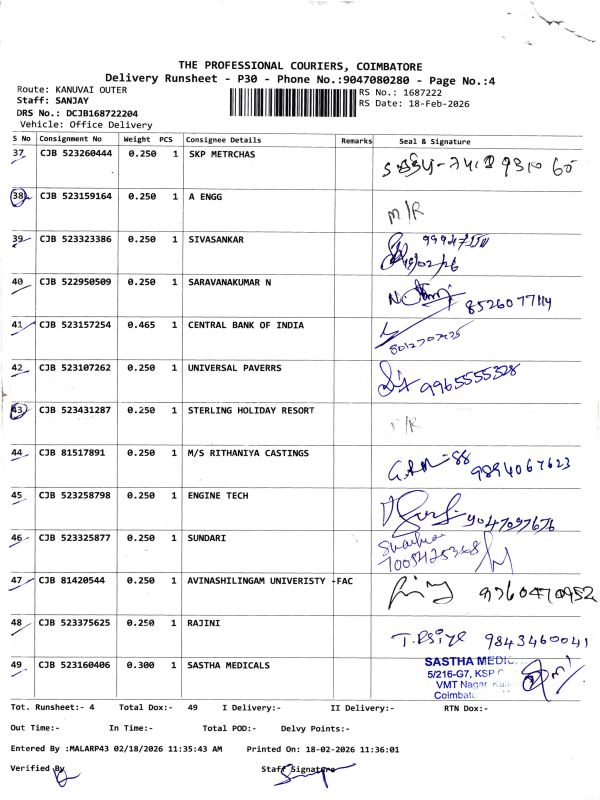 THE PROFESSIONAL COURIERS, COIMBATORE
Delivery Runsheet - P30 - Phone No.:9047080280 - Page No.:4
Route: KANUVAI OUTER
RS No.: 1687222
Staff: SANJAY
RS Date: 18-Feb-2026
DRS No.: DCJB168722204
Vehicle: Office Delivery
S No Consignment No Weight PCS Consignee Details Remarks Seal & Signature
37 CJB 523260444 0.250 1 SKP METRCHAS
38 CJB 523159164 0.250 1 A ENGG
M/R
39 CJB 523323386 0.250 1 SIVASANKAR
18/02/26
40 CJB 522950509 0.250 1 SARAVANAKUMAR N
8526077114
41 CJB 523157254 0.465 1 CENTRAL BANK OF INDIA
42 CJB 523107262 0.250 1 UNIVERSAL PAVERRS
9965555328
43 CJB 523431287 0.250 1 STERLING HOLIDAY RESORT
44 CJB 81517891 0.250 1 M/S RITHANIYA CASTINGS
9894067623
45 CJB 523258798 0.250 1 ENGINE TECH
9047097676
46 CJB 523325877 0.250 1 SUNDARI
47 CJB 81420544 0.250 1 AVINASHILINGAM UNIVERISTY -FAC
9360470952
48 CJB 523375625 0.250 1 RAJINI
9843460041
49 CJB 523160406 0.300 1 SASTHA MEDICALS
SASTHA MEDIC
5/216-G7, KSP
VMT Nagar
Coimbat
Tot. Runsheet:- 4 Total Dox:- 49 I Delivery:- II Delivery:- RTN Dox:-
Out Time:- In Time:- Total POD:- Delvy Points:-
Entered By :MALARP43 02/18/2026 11:35:43 AM Printed On: 18-02-2026 11:36:01
Verified By Staff Signature